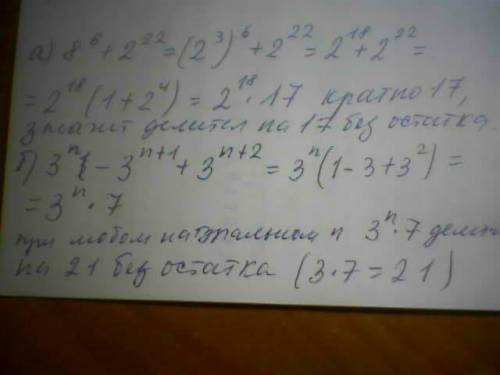 а) 8⁶ + 2²² = (2³)⁶ + 2²² = 2¹⁸ + 2²² =
= 2¹⁸ (1 + 2⁴) = 2¹⁸ · 17 кратно 17,
значит делится на 17 без остатка
б) 3ⁿ - 3ⁿ⁺¹ + 3ⁿ⁺² = 3ⁿ (1 - 3 + 3²) =
= 3ⁿ · 7
при любом натуральном n 3ⁿ · 7 делит
на 21 без остатка (3 · 7 = 21)